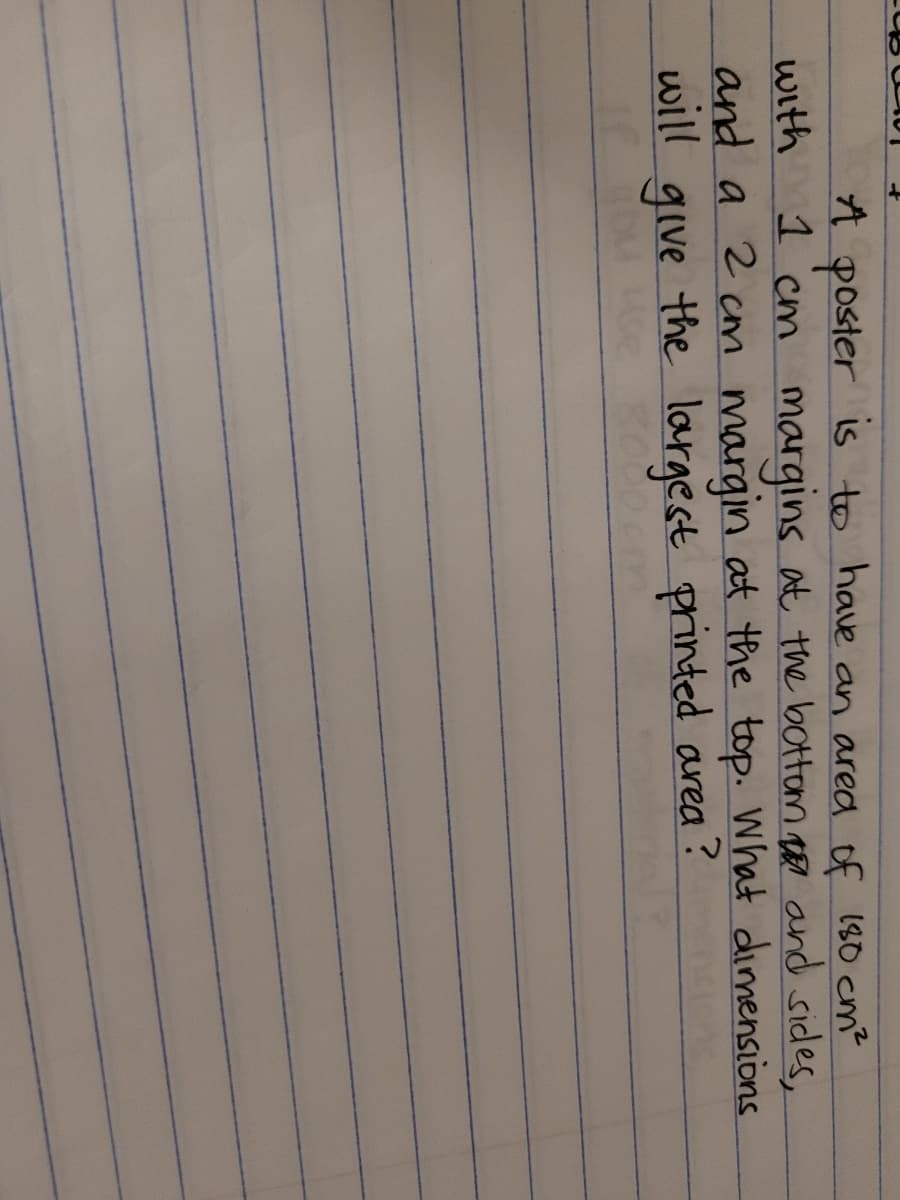 A poster is to have an area of 180 cm²
with 1 cm margins at the bottom and sides,
and a 2 cm margin at the top. What dimensions
will give the largest printed area?